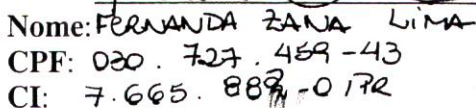 Nome: FERNANDA ZANA LIMA
CPF: 030.727.459-43
CI: 7.665. -0 /PR